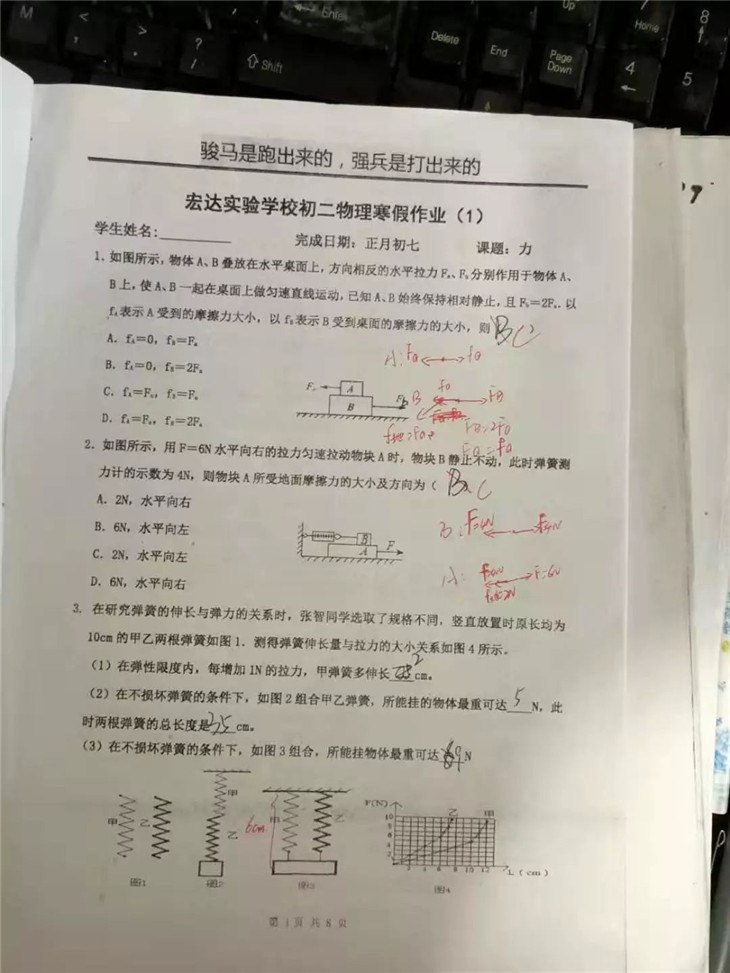 M
<
,
>
.
?
/
Shift
Enter
Delete
End
Up
Page
Down
7
Home
4
8
5
骏马是跑出来的，强兵是打出来的
宏达实验学校初二物理寒假作业（1）
学生姓名:
完成日期：正月初七
课题：力
1. 如图所示，物体A、B叠放在水平桌面上，方向相反的水平拉力Fₐ、Fᵦ分别作用于物体A、
B上，使A、B一起在桌面上做匀速直线运动，已知A、B始终保持相对静止，且Fᵦ=2Fₐ. 以
fₐ表示A受到的摩擦力大小，以fᵦ表示B受到桌面的摩擦力的大小，则 B C
A. fₐ=0, fᵦ=Fₐ
B. fₐ=0, fᵦ=2Fₐ
C. fₐ=Fₐ, fᵦ=Fₐ
D. fₐ=Fₐ, fᵦ=2Fₐ
A
B
B
FB
2. 如图所示，用F=6N水平向右的拉力匀速拉动物块A时，物块B静止不动，此时弹簧测
力计的示数为4N，则物块A所受地面摩擦力的大小及方向为（ B C
A. 2N，水平向右
B. 6N，水平向左
C. 2N，水平向左
D. 6N，水平向右
B
A
F
3. 在研究弹簧的伸长与弹力的关系时，张智同学选取了规格不同，竖直放置时原长均为
10cm的甲乙两根弹簧如图1. 测得弹簧伸长量与拉力的大小关系如图4所示。
（1）在弹性限度内，每增加1N的拉力，甲弹簧多伸长 2 cm。
（2）在不损坏弹簧的条件下，如图2组合甲乙弹簧，所能挂的物体最重可达 5 N，此
时两根弹簧的总长度是 35 cm。
（3）在不损坏弹簧的条件下，如图3组合，所能挂物体最重可达 9 N
甲
乙
图1
甲
乙
图2
6cm
甲
乙
图3
F(N)
乙
甲
10
8
6
4
2
2 4 6 8 10 12
L (cm)
图4
第 1 页 共 8 页